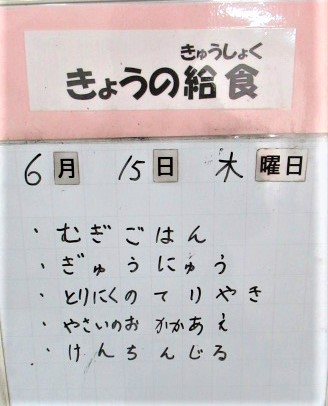 きゅうしょく
きょうの給食
6月 15日 木曜日
・むぎごはん
・ぎゅうにゅう
・とりにくのてりやき
・やさいのおかかあえ
・けんちんじる